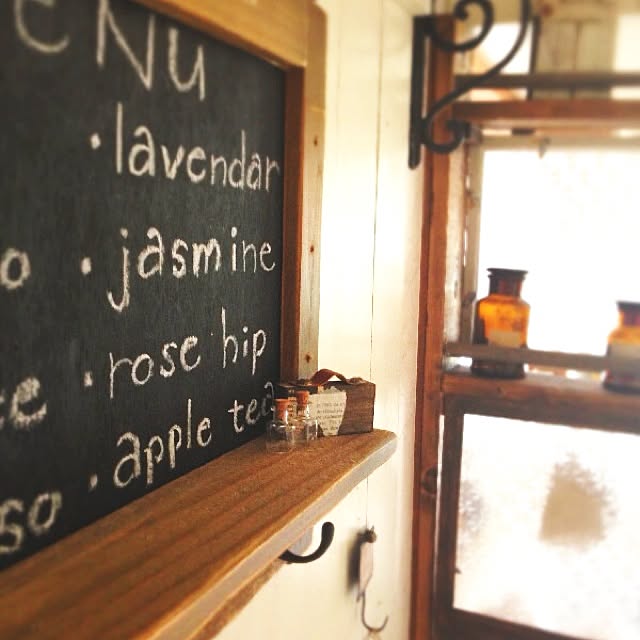 eNu
· lavendar
o · jasmine
te · rose hip
so · apple tea